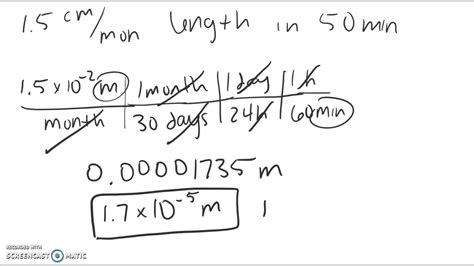 1.5 cm/mon length in 50min
1.5 x 10⁻² m | 1month | 1 day | 1 h
month | 30 days | 24h | 60 min
0.00001735 m
1.7 x 10⁻⁵ m
RECORDED WITH
SCREENCAST-O-MATIC